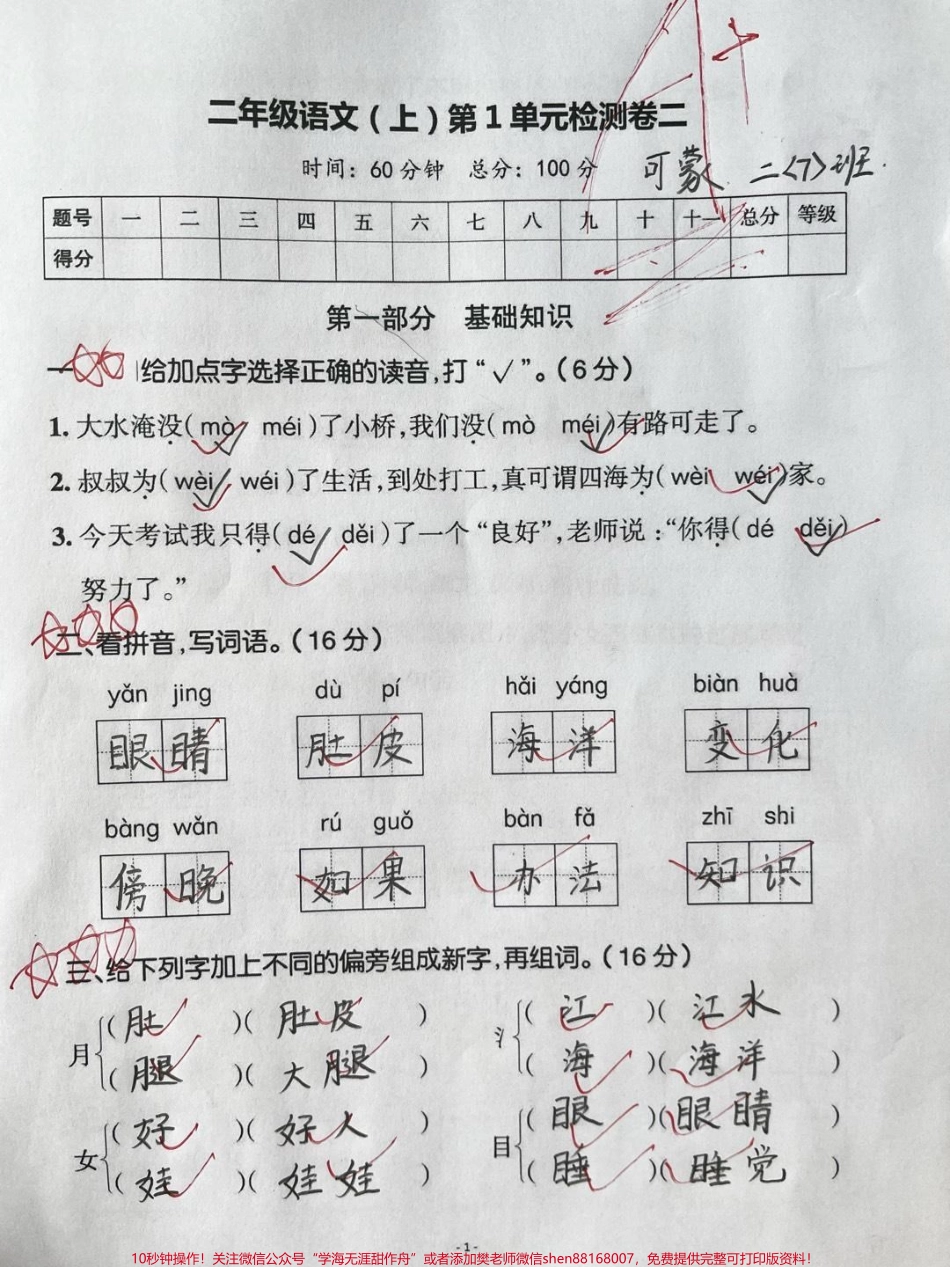 A+
二年级语文(上)第1单元检测卷二
时间:60分钟 总分:100分 可蒙 二〈7〉班
题号 一 二 三 四 五 六 七 八 九 十 十一 总分 等级
得分
第一部分 基础知识
一 给加点字选择正确的读音,打“✓”。(6分)
1. 大水淹没(mò✓ méi)了小桥,我们没(mò méi✓)有路可走了。
2. 叔叔为(wèi✓ wéi)了生活,到处打工,真可谓四海为(wèi wéi✓)家。
3. 今天考试我只得(dé✓ děi)了一个“良好”,老师说:“你得(dé děi✓)
努力了。”
二、看拼音,写词语。(16分)
yǎn jing dù pí hǎi yáng biàn huà
眼睛 肚皮 海洋 变化
bàng wǎn rú guǒ bàn fǎ zhī shi
傍晚 如果 办法 知识
三、给下列字加上不同的偏旁组成新字,再组词。(16分)
月 (肚)(肚皮) 氵 (江)(江水)
(腿)(大腿) (海)(海洋)
女 (好)(好人) 目 (眼)(眼睛)
(娃)(娃娃) (睡)(睡觉)
- 1 -
10秒钟操作!关注微信公众号“学海无涯甜作舟”或者添加樊老师微信shen88168007,免费提供完整可打印版资料!